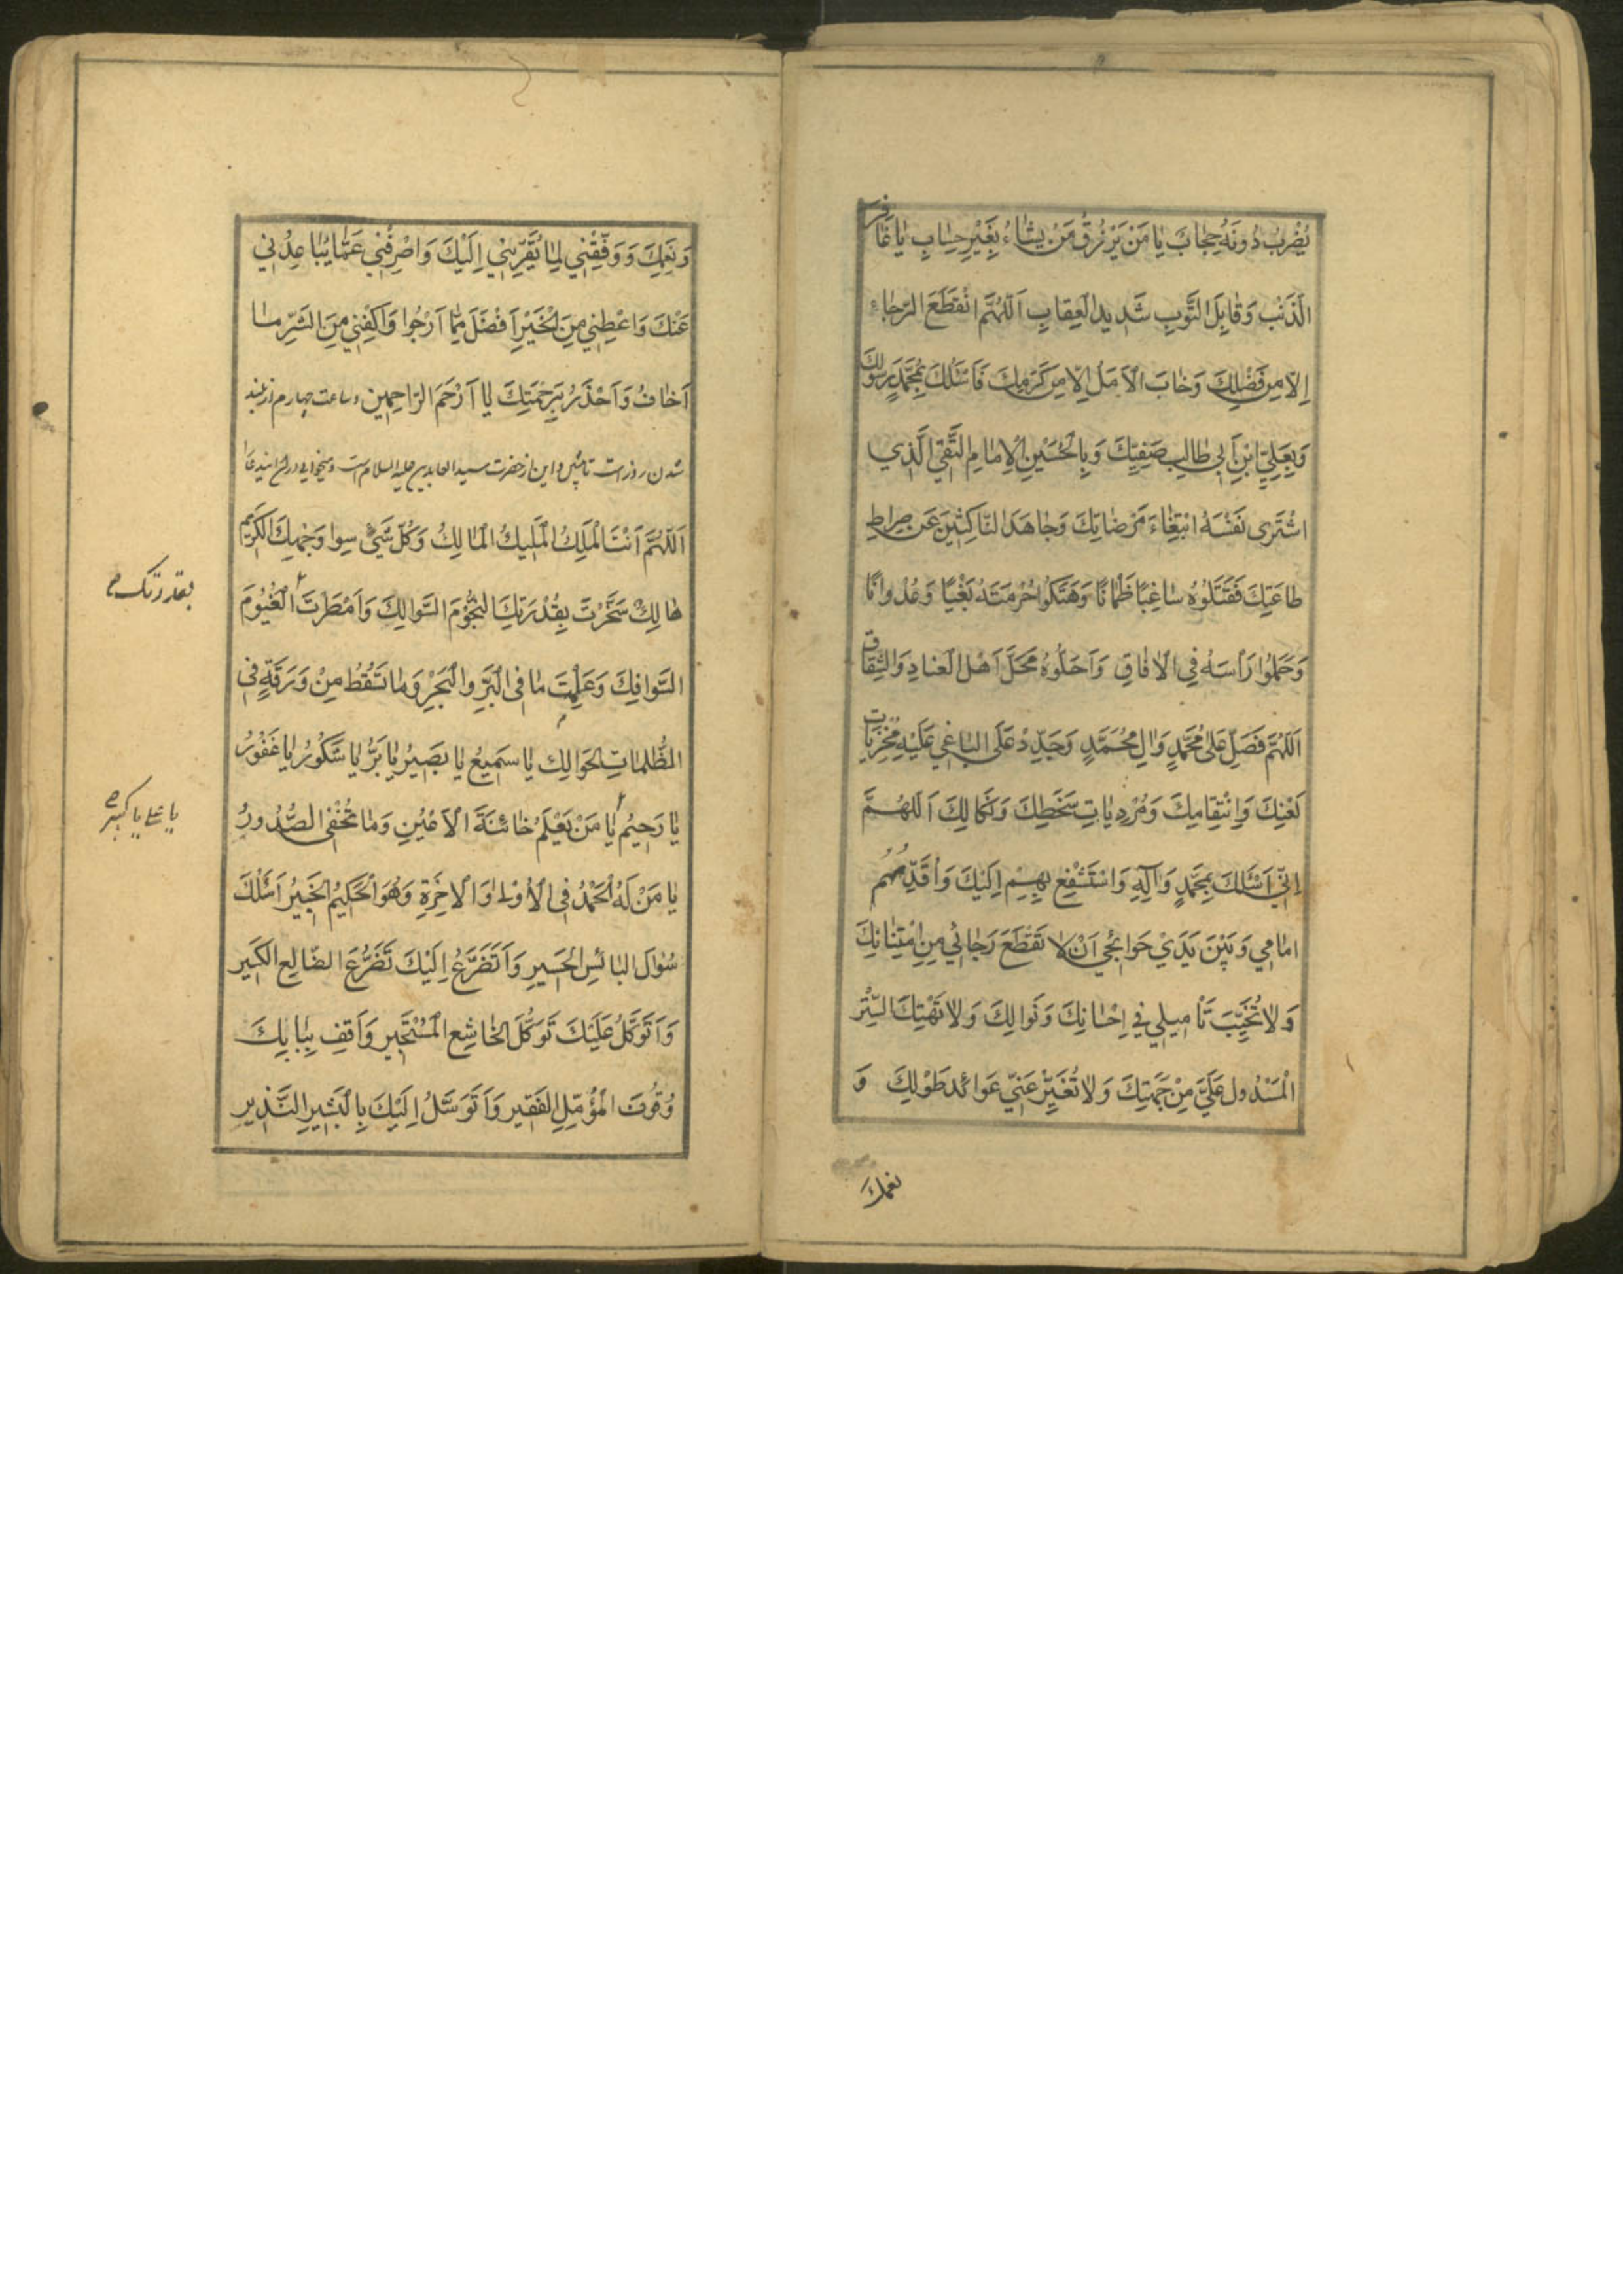 يُضْرَبُ دُونَهُ حِجَابٌ يَا مَنْ يَرْزُقُ مَنْ يَشَاءُ بِغَيْرِ حِسَابٍ يَا غَافِرَ
الذَّنْبِ وَقَابِلَ التَّوْبِ شَدِيدَ الْعِقَابِ اَللّٰهُمَّ انْقَطَعَ الرَّجَاءُ
اِلَّا مِنْ فَضْلِكَ وَخَابَ الْاَمَلُ اِلَّا مِنْ كَرَمِكَ فَاَسْئَلُكَ بِمُحَمَّدٍ رَسُولِكَ
وَبِعَلِيِّ ابْنِ اَبِي طَالِبٍ صَفِيِّكَ وَبِالْحُسَيْنِ الْاِمَامِ التَّقِيِّ الَّذِي
اشْتَرٰى نَفْسَهُ ابْتِغَاءَ مَرْضَاتِكَ وَجَاهَدَ النَّاكِثِينَ عَنْ صِرَاطِ
طَاعَتِكَ فَقَتَلُوهُ سَاغِبًا ظَمْاٰنًا وَهَتَكُوا حُرْمَتَهُ بَغْيًا وَعُدْوَانًا
وَحَمَلُوا رَاْسَهُ فِي الْاٰفَاقِ وَاَحَلُّوهُ مَحَلَّ اَهْلِ الْعِنَادِ وَالشِّقَاقِ
اَللّٰهُمَّ فَصَلِّ عَلٰى مُحَمَّدٍ وَاٰلِ مُحَمَّدٍ وَجَدِّدْ عَلَى الْبَاغِي عَلَيْهِ مُخْزِيَاتِ
لَعْنِكَ وَانْتِقَامِكَ وَمُرْدِيَاتِ سَخَطِكَ وَنَكَالِكَ اَللّٰهُمَّ
اِنِّي اَسْئَلُكَ بِمُحَمَّدٍ وَآلِهِ وَاسْتَشْفِعُ بِهِمْ اِلَيْكَ وَاُقَدِّمُهُمْ
اَمَامِي وَبَيْنَ يَدَيْ حَوَائِجِي اَنْ لَا تَقْطَعَ رَجَائِي مِنِ امْتِنَانِكَ
وَلَا تُخَيِّبَ تَاْمِيلِي فِي اِحْسَانِكَ وَنَوَالِكَ وَلَا تَهْتِكَ السِّتْرَ
الْمَسْدُولَ عَلَيَّ مِنْ جِهَتِكَ وَلَا تُغَيِّرْ عَنِّي عَوَائِدَ طَوْلِكَ وَ
نعمك
وَنِعَمِكَ وَوَفِّقْنِي لِمَا يُقَرِّبُنِي اِلَيْكَ وَاصْرِفْنِي عَمَّا يُبَاعِدُنِي
عَنْكَ وَاَعْطِنِي مِنَ الْخَيْرِ اَفْضَلَ مِمَّا اَرْجُوا وَاكْفِنِي مِنَ الشَّرِّ مَا
اَخَافُ وَاَحْذَرُ بِرَحْمَتِكَ يَا اَرْحَمَ الرَّاحِمِينَ وساعت چهارم از بلند
شدن روز است تا پیش و این از حضرت سید العابدین علیه السلام است
اَللّٰهُمَّ اَنْتَ الْمَلِكُ الْمَلِيكُ الْمَالِكُ وَكُلُّ شَيْءٍ سِوَا وَجْهِكَ الْكَرِيمِ
هَالِكٌ سَخَّرْتَ بِقُدْرَتِكَ النُّجُومَ السَّوَالِكَ وَاَمْطَرْتَ الْغُيُومَ
بقدرتک
السَّوَافِكَ وَعَلِمْتَ مَا فِي الْبَرِّ وَالْبَحْرِ وَمَا تَسْقُطُ مِنْ وَرَقَةٍ فِي
الظُّلُمَاتِ الْحَوَالِكِ يَا سَمِيعُ يَا بَصِيرُ يَا بَرُّ يَا شَكُورُ يَا غَفُورُ
يَا رَحِيمُ يَا مَنْ يَعْلَمُ خَائِنَةَ الْاَعْيُنِ وَمَا تُخْفِي الصُّدُورُ
يَا مَنْ لَهُ الْحَمْدُ فِي الْاُولٰى وَالْاٰخِرَةِ وَهُوَ الْحَكِيمُ الْخَبِيرُ اَسْئَلُكَ
سُؤَالَ الْبَائِسِ الْحَسِيرِ وَاَتَضَرَّعُ اِلَيْكَ تَضَرُّعَ الضَّالِعِ الْكَسِيرِ
وَاَتَوَكَّلُ عَلَيْكَ تَوَكُّلَ الْخَاشِعِ الْمُسْتَجِيرِ وَاَقِفُ بِبَابِكَ
وُقُوفَ الْمُؤَمِّلِ الْفَقِيرِ وَاَتَوَسَّلُ اِلَيْكَ بِالْبَشِيرِ النَّذِيرِ